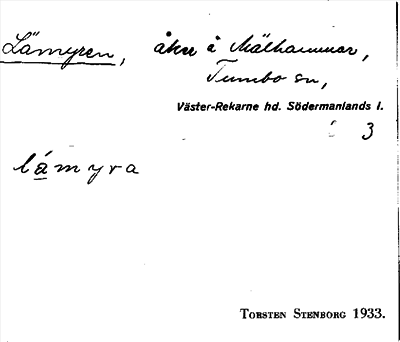 Lämyren, åker å Mälhammar,
Tumbo sn,
Väster-Rekarne hd. Södermanlands l.
3
lámyra
Torsten Stenborg 1933.